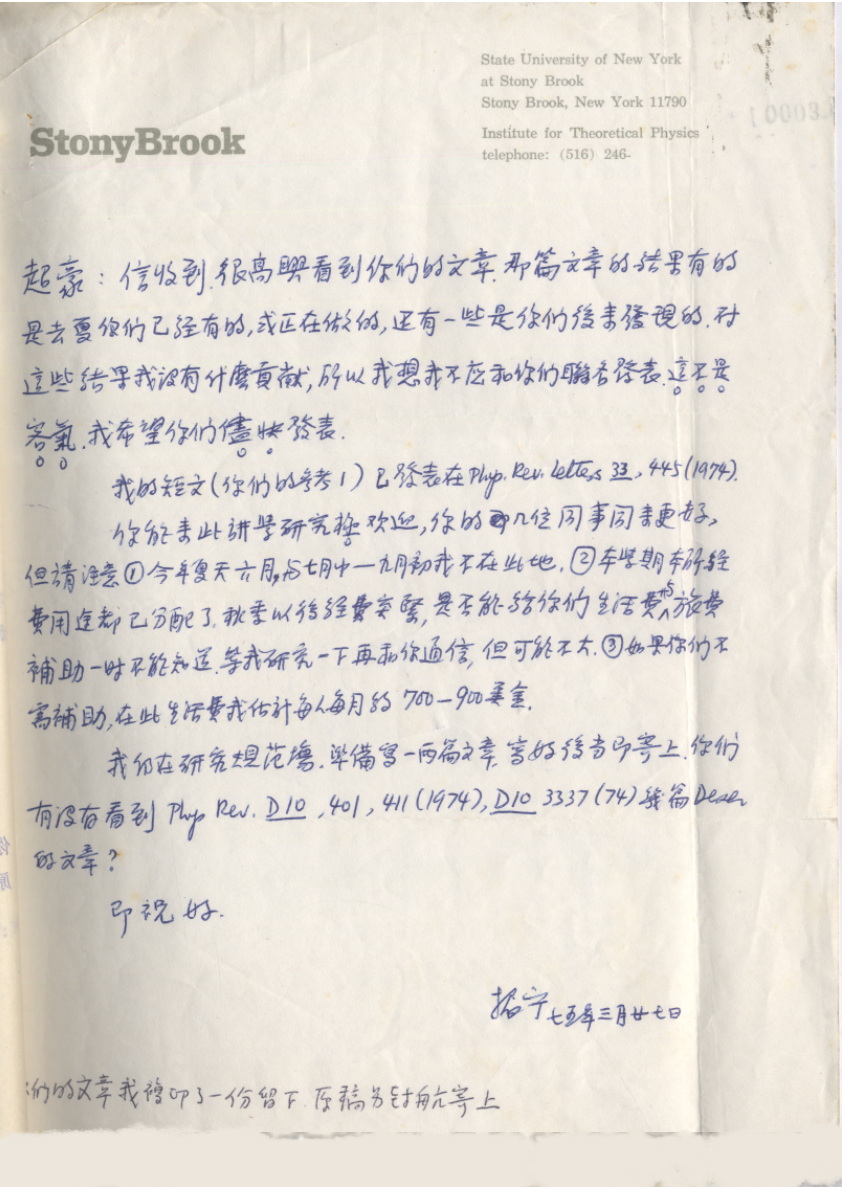 State University of New York
at Stony Brook
Stony Brook, New York 11790
Institute for Theoretical Physics
telephone: (516) 246-
StonyBrook
超豪：信收到.很高興看到你们的文章.那篇文章的结果有的
是去夏你们已经有的,或正在做的,还有一些是你们後来發現的.对
這些结果我没有什麼貢献,所以我想我不应和你们聯名發表.這不是
客氣.我希望你们儘快發表.
我的短文(你们的参考1)已發表在Phys. Rev. Letters 33, 445(1974).
你能来此讲学研究極欢迎,你的几位同事同来更好,
但請注意①今年夏天六月,与七月中一九月初我不在此地.②本學期本所经
費用途都已分配了.秋季以後经費奇緊,是否能给你们生活費与旅費
補助一时不能知道.等我研究一下再和你通信,但可能不大.③如果你们不
需補助,在此生活費我估計每人每月约 700—900美金.
我仍在研究規范場.準備寫一两篇文章.寫好後当即寄上.你们
有没有看到 Phys Rev. D10, 401, 411(1974), D10 3337(74)幾篇Deser
的文章?
即祝 好.
振宁 七五年三月廿七日
们的文章我複印了一份留下.原稿另封航寄上